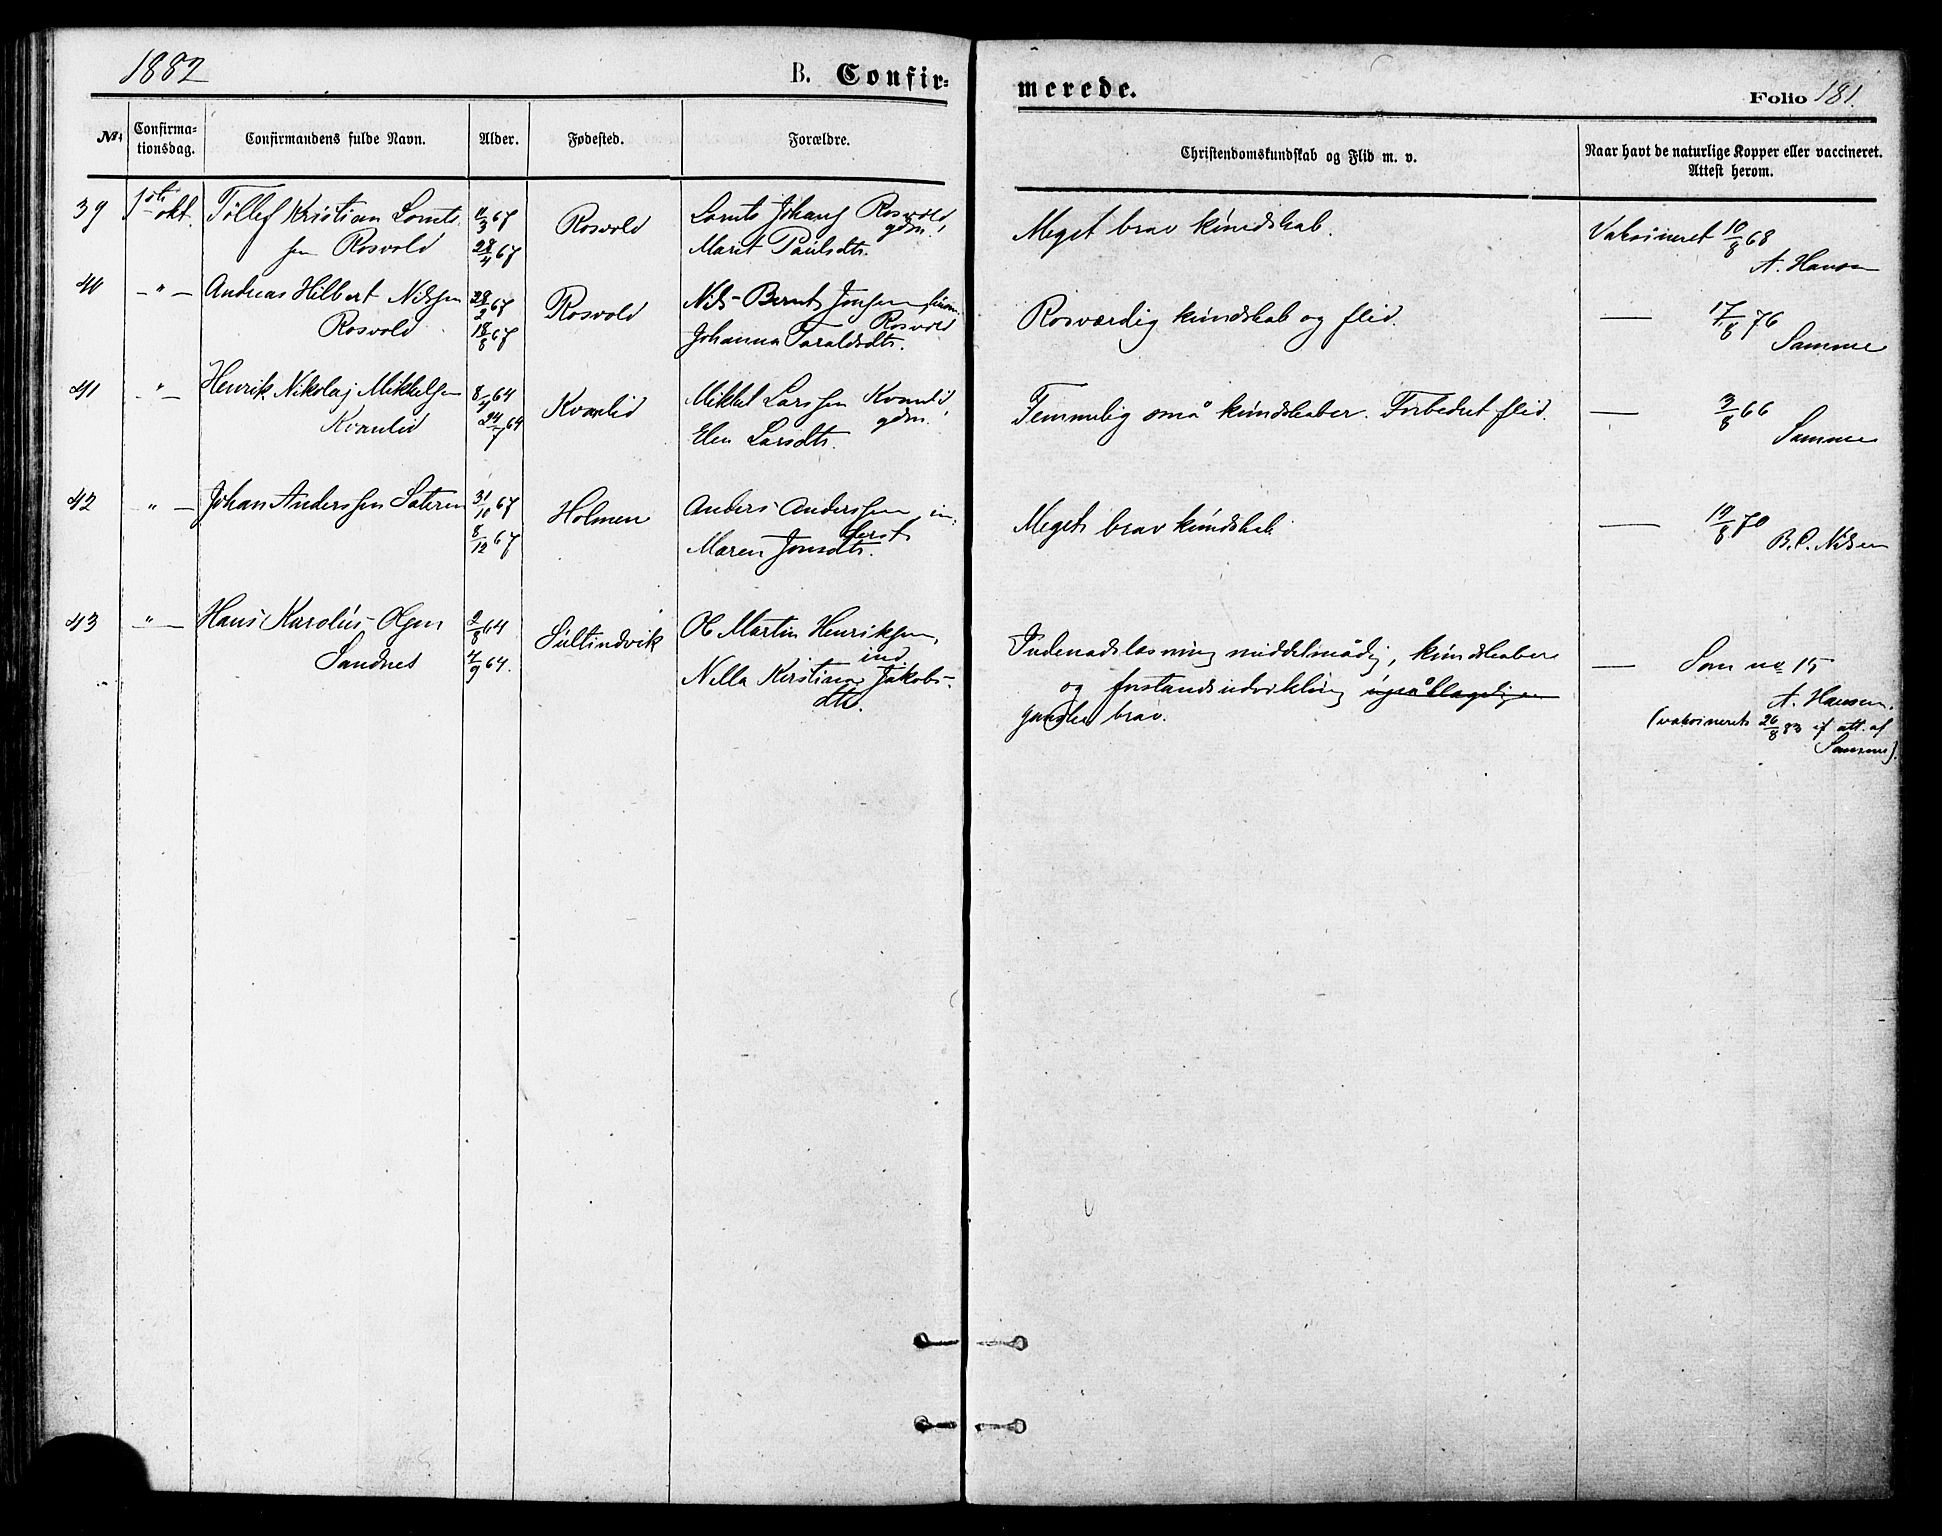 1882
B. Confir-
merede.
Folio 181.
No.
Confirma-
tionsdag.
Confirmandens fulde Navn.
Alder.
Fødested.
Forældre.
Christendomskundskab og Flid m. v.
Naar havt de naturlige Kopper eller vaccineret.
Attest herom.
39 1ste okt. Tollef Kristian Lornts-
sen Rosvold
3 67
28/4 67
Rosvold
Lornts Johans Rosvold
gdm.
Marit Paulsdtr.
Meget brav kundskab.
Vaksineret 10/8 68
A. Hansen
40 — " — Andreas Hilbert Nilssen
Rosvold
28/2 67
18/8 67
Rosvold
Nils Bernt Jonsen
Rosvold
Johanna Taraldsdtr.
Rosværdig kundskab og flid.
— 17/8 76
Samme
41 — " — Henrik Nikolaj Mikkelsen
Kvamlid
8/4 64
24/7 64
Kvamlid
Mikkel Larssen Kvamlid
gdm.
Elen Larsdtr.
Temmelig små kundskaber. Forbedret flid.
— 3/8 66
Samme
42 — " — Johan Anderssen Sateren
31/10 67
8/12 67
Holmen
Anders Anderssen, in-
derst
Maren Jonsdtr.
Meget brav kundskab
— 19/8 70
B.C. Nilsen
43 — " — Hans Karolius Olsen
Sandnes
2/8 64
4/9 64.
Sultindvik
Ole Martin Henriksen,
ind
Nella Kirstina Jakobs-
dtr.
Indenadslæsning middelmådig, kundskaber
og forstandsudvikling upåklagelig
ganske brav.
— Som no 15
A. Hansen.
(vaksineret 26/8 83 if. att. af
Samme).